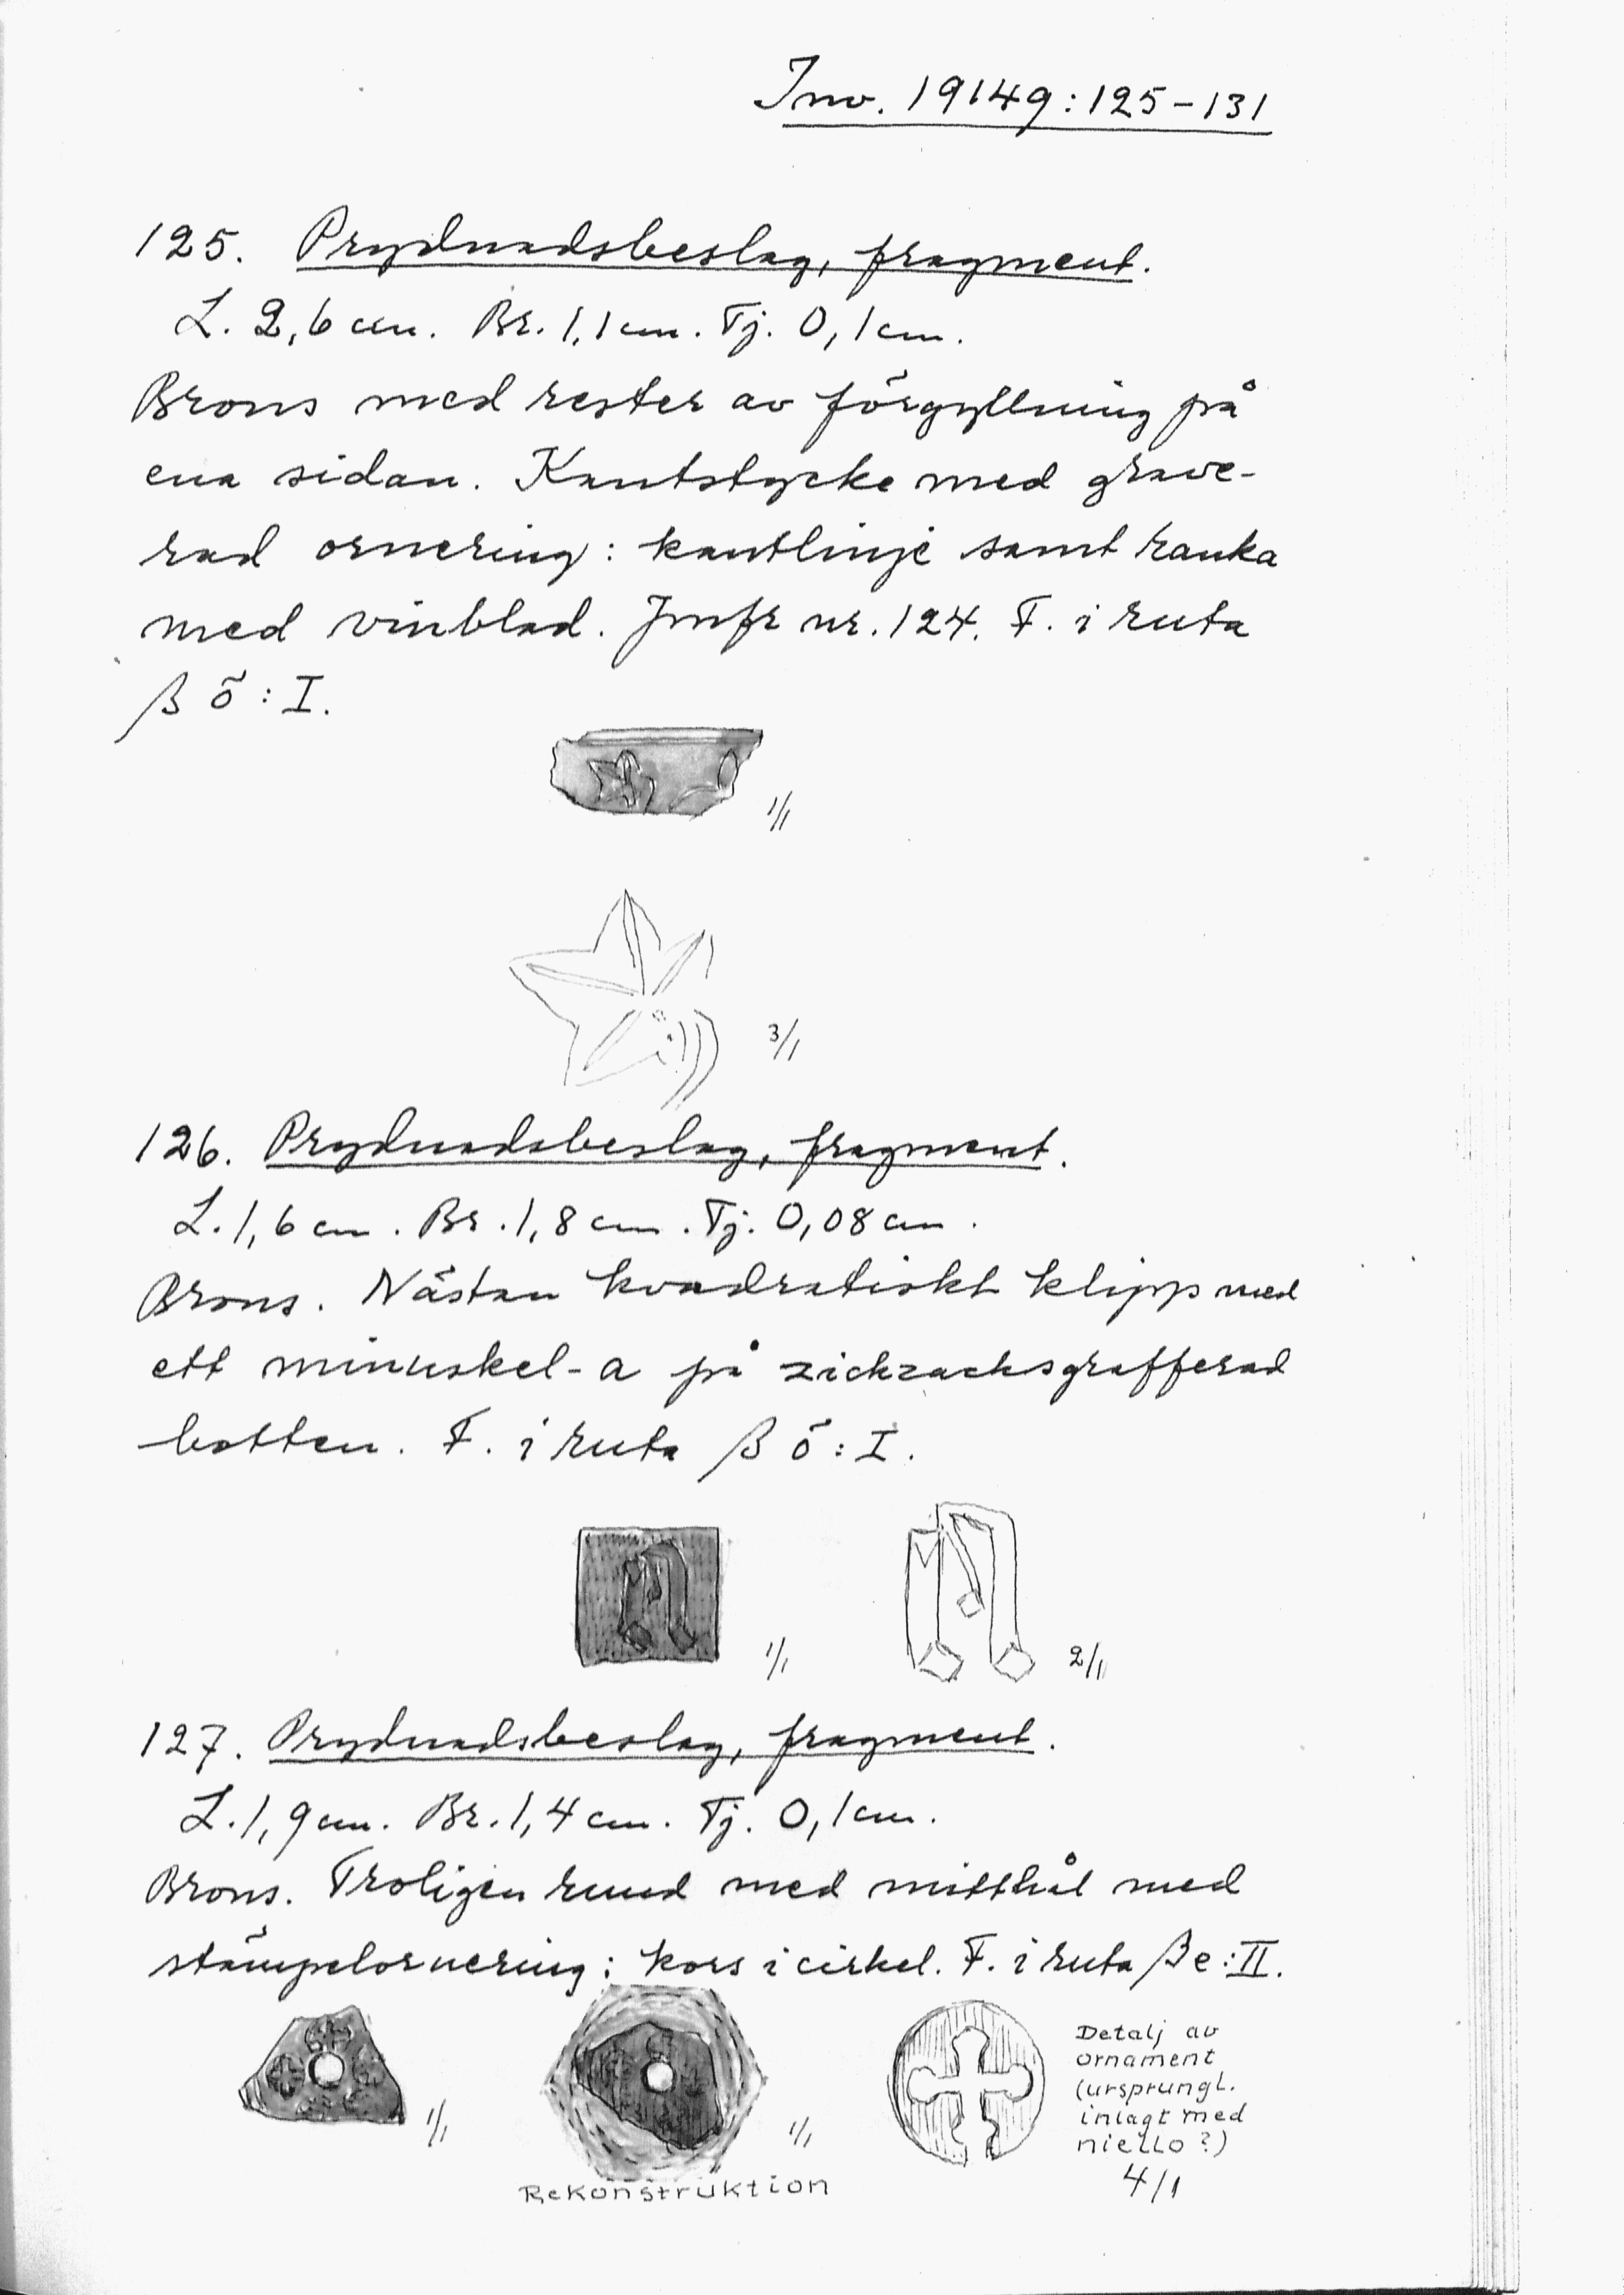 Inv. 19149:125-131
125. Prydnadsbeslag, fragment.
L. 2,6 cm. Br. 1,1 cm. Tj. 0,1 cm.
Brons med rester av förgyllning på
ena sidan. Kantstycke med grave-
rad ornering: kantlinje samt ranka
med vinblad. Jmfr nr. 124. F. i ruta
β ö : I.
1/1
3/1
126. Prydnadsbeslag, fragment.
L. 1,6 cm. Br. 1,8 cm. Tj. 0,08 cm.
Brons. Nästan kvadratiskt klipp med
ett minuskel-a på zickzacksgrafferad
botten. F. i ruta β ö : I.
1/1
2/1
127. Prydnadsbeslag, fragment.
L. 1,9 cm. Br. 1,4 cm. Tj. 0,1 cm.
Brons. Troligen rund med mitthål med
stämpelornering: kors i cirkel. F. i ruta β e : II.
1/1
1/1
Rekonstruktion
Detalj av
ornament
(ursprungl.
inlagt med
niello?)
4/1